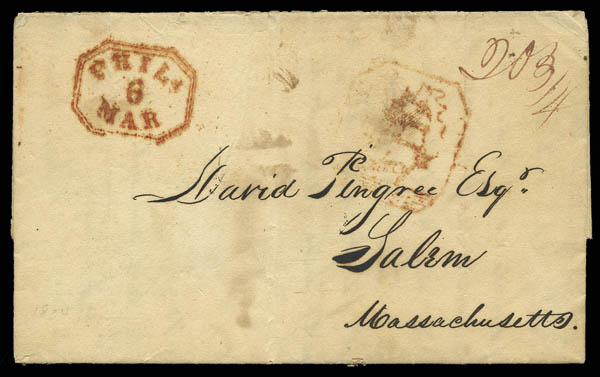 PHILA
6
MAR
David Pingree Esqr.
Salem
Massachusetts.